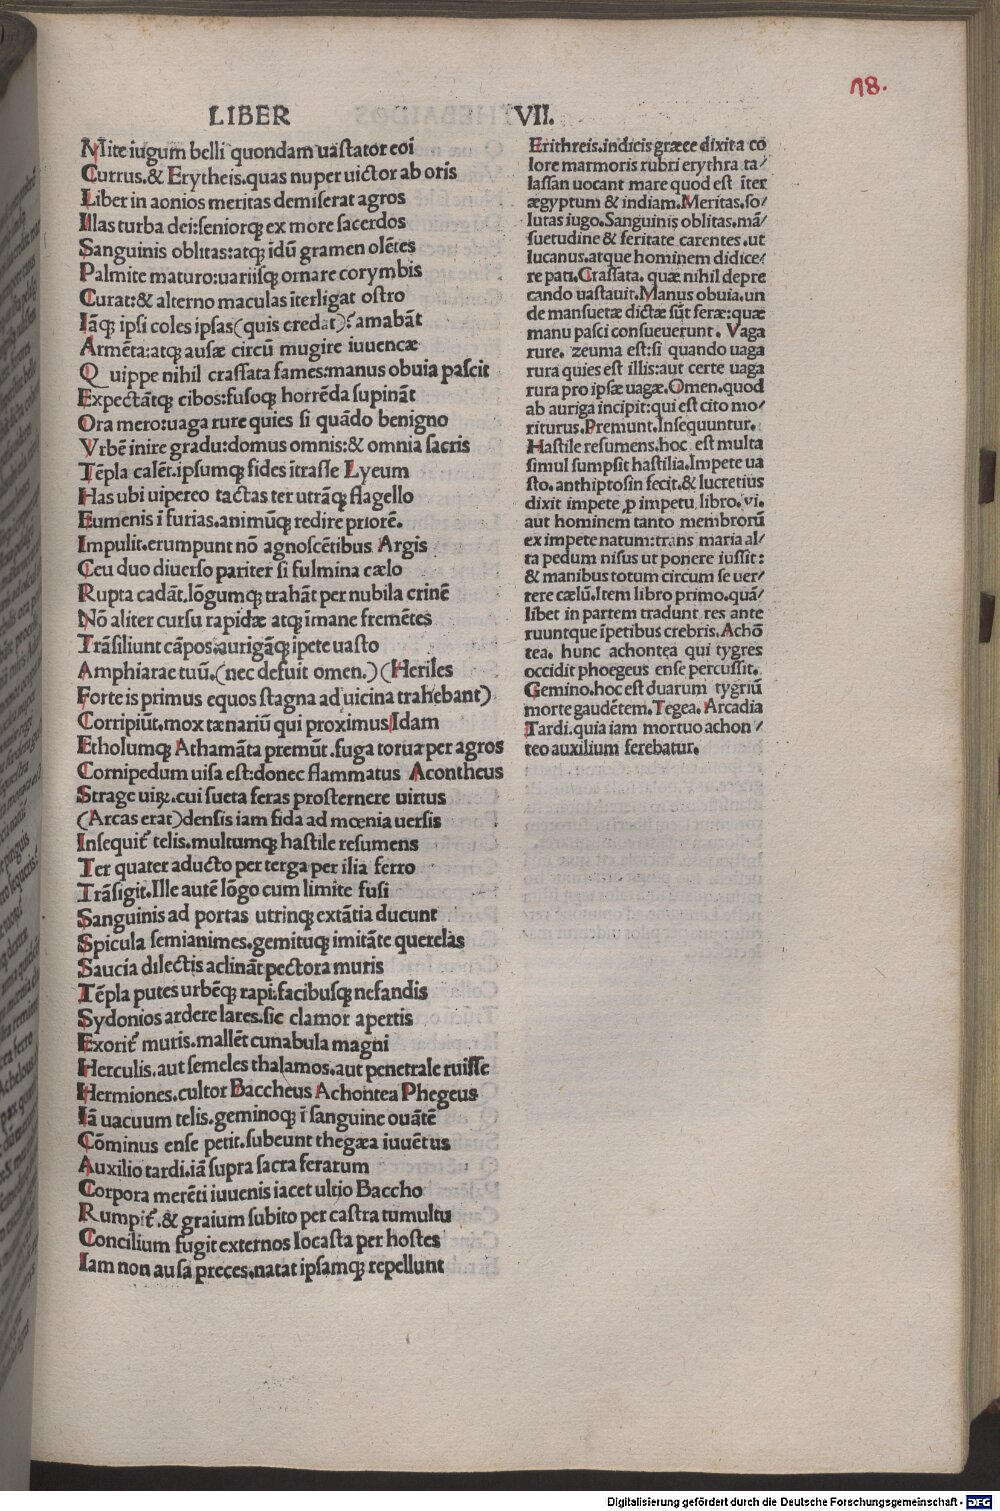 LIBER VII.
18.
Mite iugum belli quondam uastator eoi
Currus.& Erytheis.quas nuper uictor ab oris
Liber in aonios meritas demiserat agros
Illas turba dei:seniorqꝫ ex more sacerdos
Sanguinis oblitas:atqꝫ idū gramen olētes
Palmite maturo:uariisqꝫ ornare corymbis
Curat:& alterno maculas īterligat ostro
Iāqꝫ ipsi coles ipsas(quis credat)?amabāt
Armēta:atqꝫ ausæ circū mugire iuuencæ
Quippe nihil crassata fames:manus obuia pascit
Expectātqꝫ cibos:fusoqꝫ horrēda supināt
Ora mero:uaga rure quies si quādo benigno
Vrbē inire gradu:domus omnis:& omnia sacris
Tēpla calēt.ipsumqꝫ fides ītrasse Lyeum
Has ubi uipereo tactas ter utrāqꝫ flagello
Eumenis ī furias.animūqꝫ redire priorē.
Impulit.erumpunt nō agnoscētibus Argis
Ceu duo diuerso pariter si fulmina cælo
Rupta cadāt.lōgumqꝫ trahāt per nubila crinē
Nō aliter cursu rapidæ atqꝫ imane fremētes
Trāsiliunt cāpos:aurigāqꝫ ipete uasto
Amphiarae tuū.(nec defuit omen.)(Heriles
Forte is primus equos stagna ad uicina trahebant)
Corripiūt.mox tænariū qui proximus Idam
Etholumqꝫ Athamāta premūt.fuga torua per agros
Cornipedum uisa est:donec flammatus Acontheus
Strage uiꝝ.cui sueta feras prosternere uirtus
(Arcas erat)densis iam fida ad mœnia uersis
Insequit᷑ telis.multumqꝫ hastile resumens
Ter quater aducto per terga per ilia ferro
Trāsigit.Ille autē lōgo cum limite fusi
Sanguinis ad portas utrinqꝫ extātia ducunt
Spicula semianimes.gemituqꝫ imitāte querelas
Saucia dilectis aclināt pectora muris
Tēpla putes urbēqꝫ rapi:facibusqꝫ nefandis
Sydonios ardere lares.sic clamor apertis
Exorit᷑ muris.mallēt cunabula magni
Herculis.aut semeles thalamos.aut penetrale ruisse
Hermiones.cultor Baccheus Achontea Phegeus
Iā uacuum telis.geminoqꝫ ī sanguine ouātē
Cōminus ense petit.subeunt thegæa iuuētus
Auxilio tardi.iā supra sacra ferarum
Corpora merēti iuuenis iacet ultio Baccho
Rumpit᷑.& graium subito per castra tumultu
Concilium fugit externos locasta per hostes
Iam non ausa preces.natat ipsamqꝫ repellunt
Erithreis.indicis græce dixit a co
lore marmoris rubri erythra ta/
lassan uocant mare quod est īter
ægyptum & indiam.Meritas.so/
lutas iugo.Sanguinis oblitas.mā/
suetudine & feritate carentes.ut
lucanus.atque hominem didice/
re pati.Crassata.quæ nihil depre
cando uastauit.Manus obuia.un
de mansuetæ dictæ sūt feræ:quæ
manu pasci consueuerunt. Vaga
rure. zeuma est:si quando uaga
rura quies est illis:aut certe uaga
rura pro ipsæ uagæ.Omen.quod
ab auriga incipit:qui est cito mo/
riturus.Premunt.Insequuntur.
Hastile resumens.hoc est multa
simul sumpsit hastilia.Impete ua
sto.anthiptosin fecit.& lucretius
dixit impete ꝓ impetu libro.vi.
aut hominem tanto membrorū
ex impete natum:trans maria al/
ta pedum nisus ut ponere iussit:
& manibus totum circum se uer/
tere cælū.Item libro primo.quā/
libet in partem tradunt res ante
ruuntque īpetibus crebris.Achō
tea. hunc achontea qui tygres
occidit phoegeus ense percussit.
Gemino.hoc est duarum tygriū
morte gaudētem.Tegea.Arcadia
Tardi.quia iam mortuo achon/
teo auxilium ferebatur.
Digitalisierung gefördert durch die Deutsche Forschungsgemeinschaft - DFG